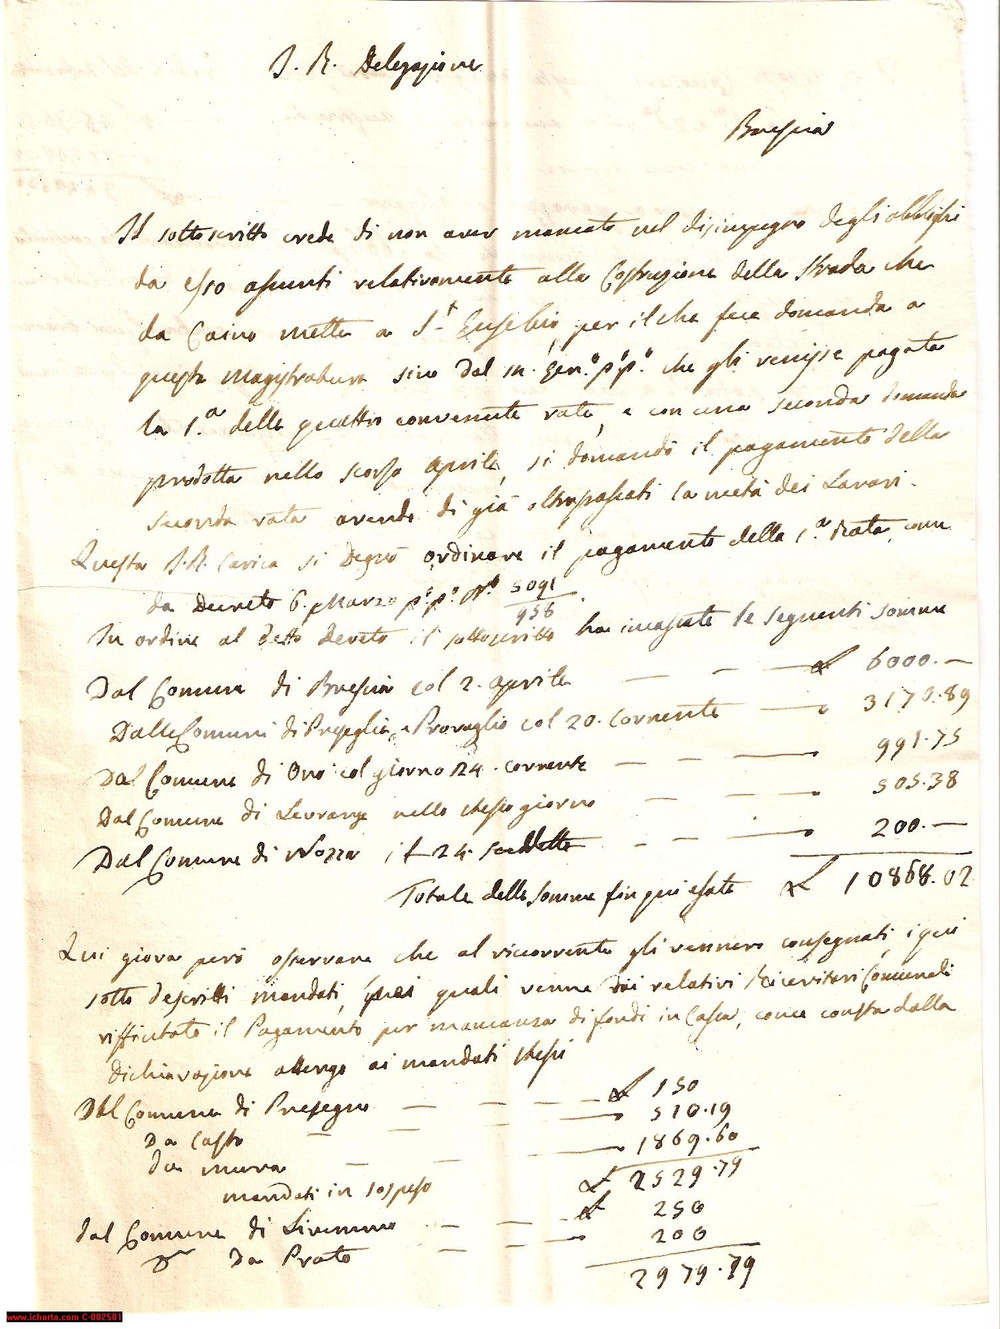 I. R. Delegazione
Brescia
Il sottoscritto crede di non aver mancato nel disimpegno degli obblighi
da esso assunti relativamente alla Costruzione della Strada che
da Caino mette a St. Eusebio, per il che fece domanda a
questa Magistratura sino dal m. Gen.º p.º p.º che gli venisse pagata
la 1.a delle quattro convenute rate, e con una seconda domanda
prodotta nello scorso Aprile, si domandò il pagamento della
seconda rata avendo di già oltrepassati la metà dei Lavori.
Questa I. R. Carica si degnò ordinare il pagamento della 1.a Rata, come
da Decreto 6. Marzo p.º p.º N.º 5091/958.
In ordine al detto decreto il sottoscritto ha incassate le seguenti somme
Dal Comune di Brescia col 2. Aprile £ 6000.—
Dalli Comuni di Preseglie, e Provaglio col 20. corrente 3170.89
Dal Comune di Ono col giorno 24. corrente 991.75
Dal Comune di Levrange nello stesso giorno 505.38
Dal Comune di Nozza il 24 suddetto 200.—
Totale delle somme fin qui esate £ 10868.02
Qui giova però osservare che al ricorrente gli vennero consegnati i qui
sotto descritti mandati, quali venne dai relativi Ricevitori Comunali
riffiutato il Pagamento per mancanza di fondi in Cassa, come consta dalla
dichiarazione attergo ai mandati stessi
Dal Comune di Presegno £ 150
Da Casto 510.19
Da Mura 1869.60
mandati in sospeso £ 2529.79
dal Comune di Livemmo £ 250
Da Prato 200
2979.79
www.icharta.com C-002501